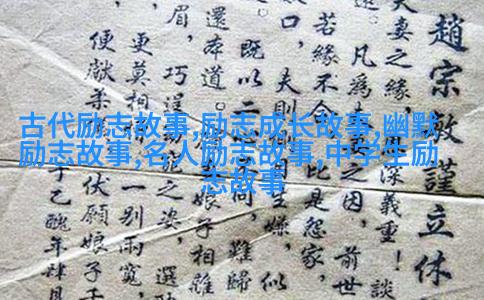 古代励志故事,励志成长故事,幽默
励志故事,名人励志故事,中学生励
志故事
趙宗敏謹立休
夫妻之緣,深義重!談
。凡為夫之因,前世
若緣不合,比是怨家,
口,夫則目生嫌,似
既以二不同,難歸
還本道。娘子相離
眉,巧逞之姿,選
更莫相一別兩寬,
便獻柔伏願娘子千
于乙醜年肆月